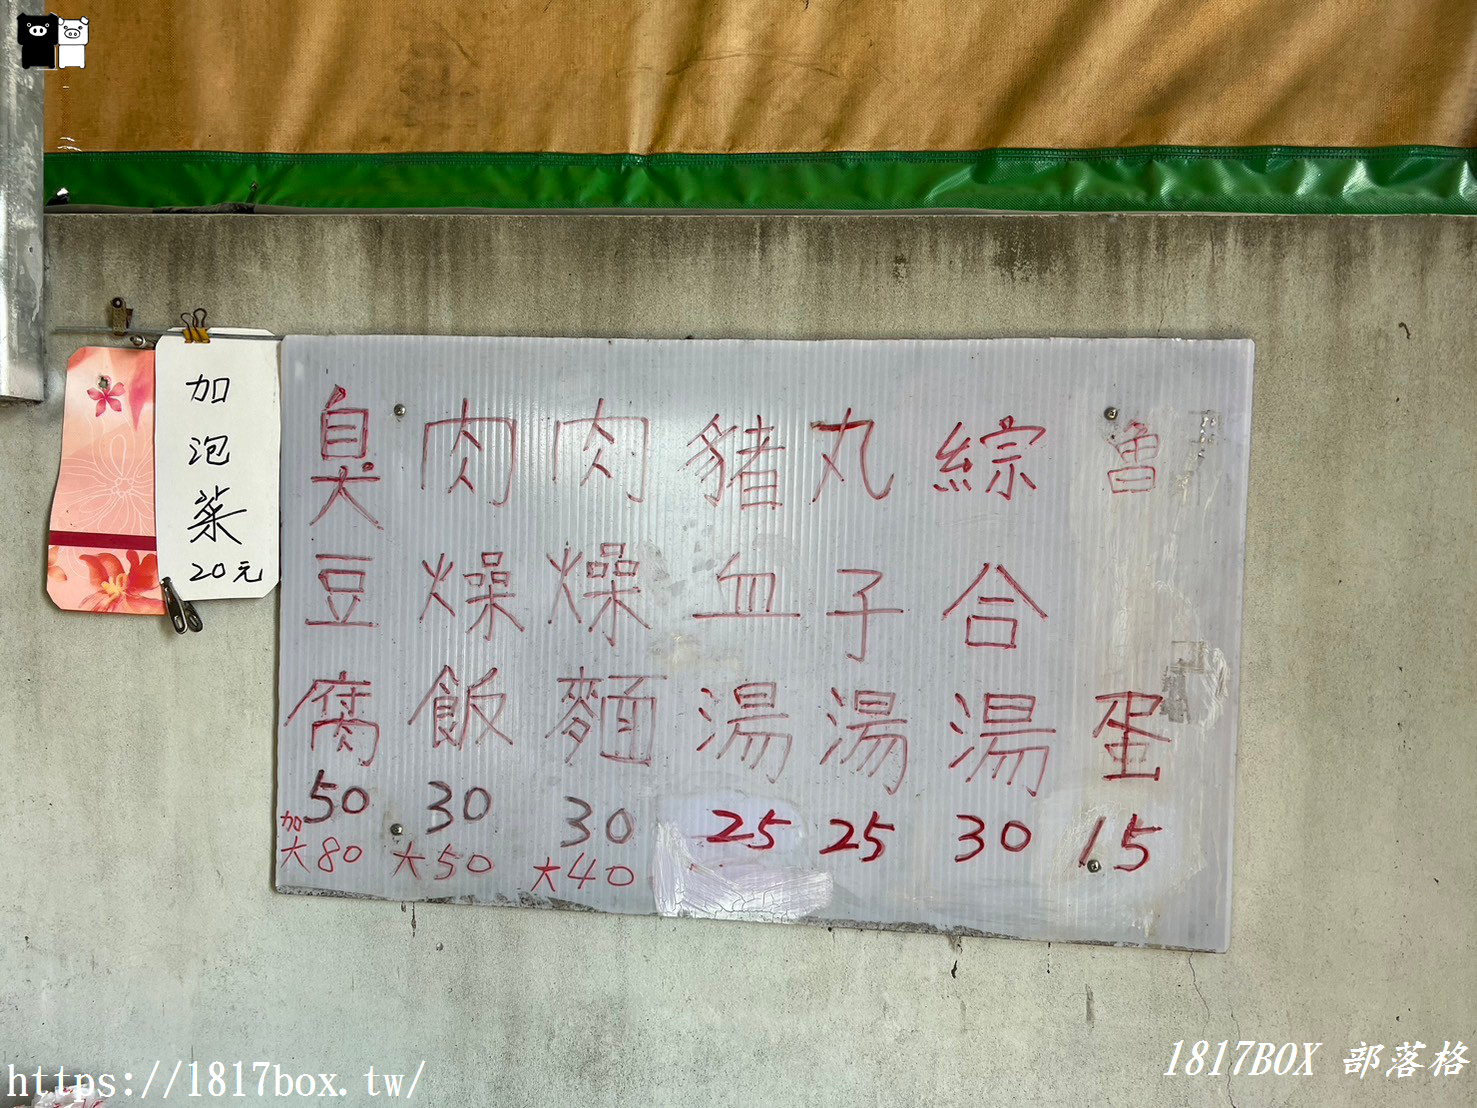 加泡菜
20元
臭豆腐
50
加大80
肉燥飯
30
大50
肉燥麵
30
大40
豬血湯
25
丸子湯
25
綜合湯
30
魯蛋
15
https://1817box.tw/
1817BOX 部落格